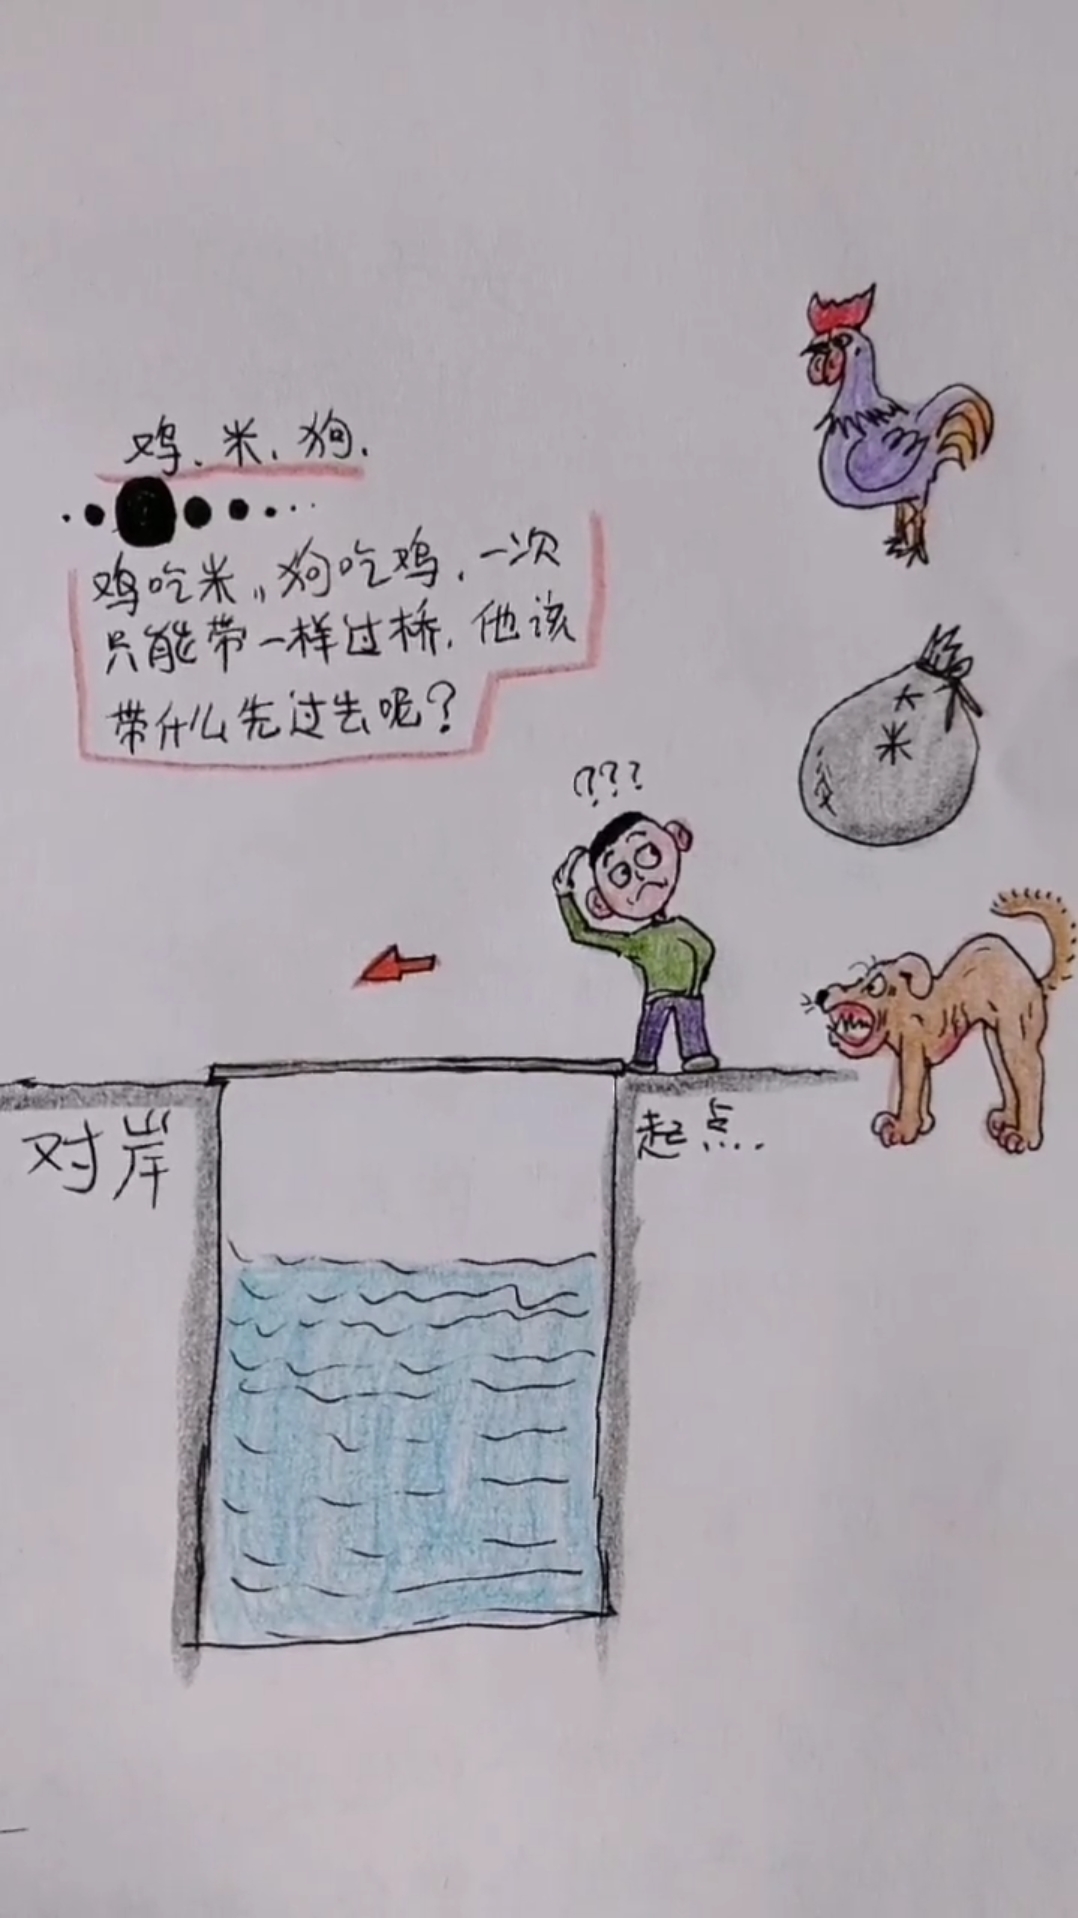 鸡、米、狗.
鸡吃米,,狗吃鸡，一次
只能带一样过桥，他该
带什么先过去呢？
???
大
米
对岸
起点..